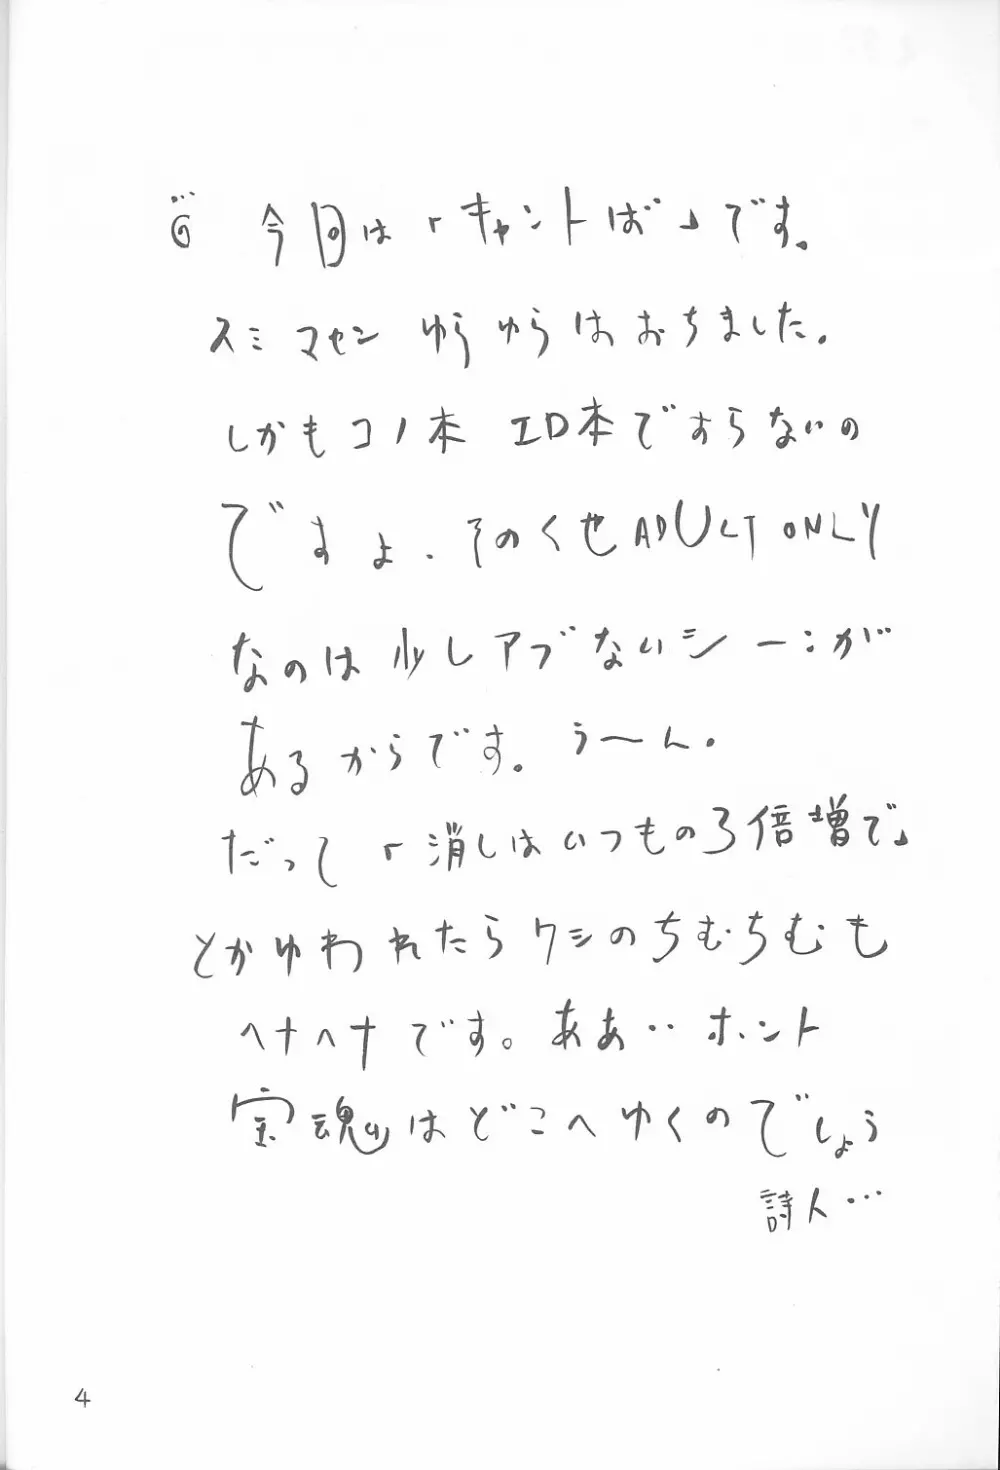 今回は「キャントば」です。
スミマセン ゆらゆらはおちました。
しかもコノ本 エロ本ですらないの
ですよ．そのくせADULT ONLY
なのは少しアブないシーンが
あるからです。う〜ん．
だって「消しはいつもの3倍増で」
とかゆわれたらワシのちむちむも
ヘナヘナです。ああ‥ホント
宝魂はどこへゆくのでしょう
詩人…
4